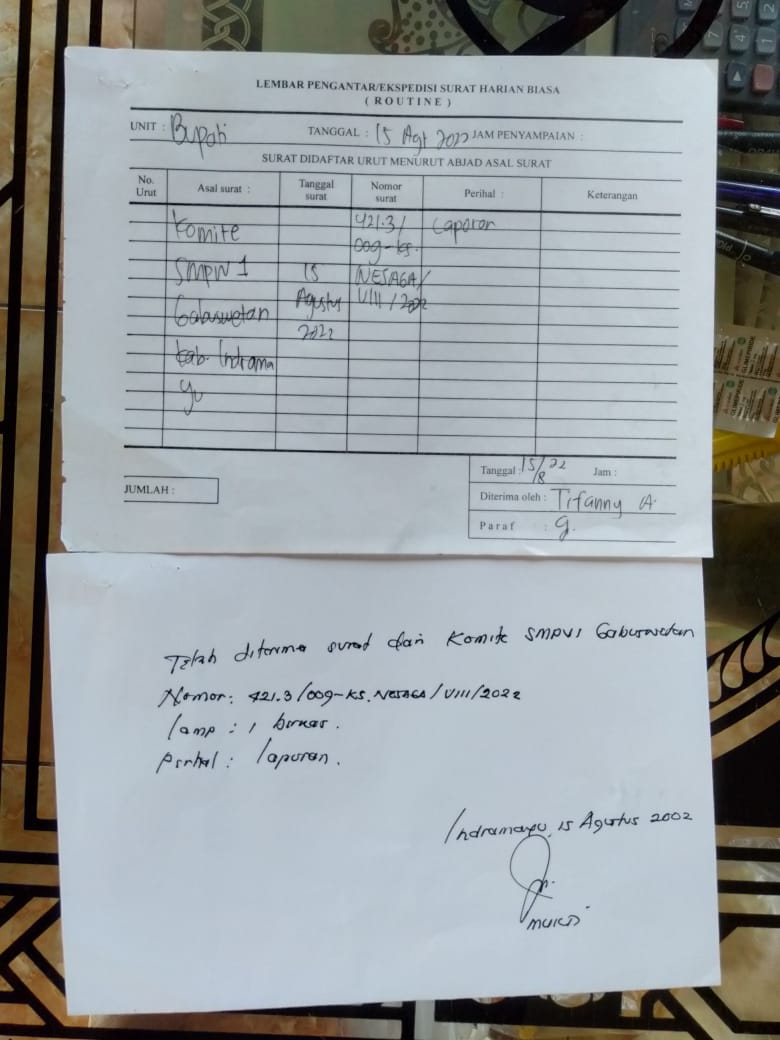 LEMBAR PENGANTAR/EKSPEDISI SURAT HARIAN BIASA
( ROUTINE )
UNIT : Bupati TANGGAL : 15 Agt 2022 JAM PENYAMPAIAN :
SURAT DIDAFTAR URUT MENURUT ABJAD ASAL SURAT
No. Urut Asal surat : Tanggal surat Nomor surat Perihal : Keterangan
Komite 421.3/ Laporan
009-KS.
SMPN 1 15 NESAGA/
Gabuswetan Agustus VIII/2022
2022
Kab. Indrama
yu
Tanggal : 15/8 22 Jam :
JUMLAH :
Diterima oleh : Tifanny A.
Paraf :
Telah diterima surat dari Komite SMPN1 Gabuswetan
Nomor: 421.3/009-KS.NESAGA/VIII/2022
Lamp : 1 berkas.
Perihal : Laporan.
Indramayu, 15 Agustus 2002
GLIMEPIRIDE